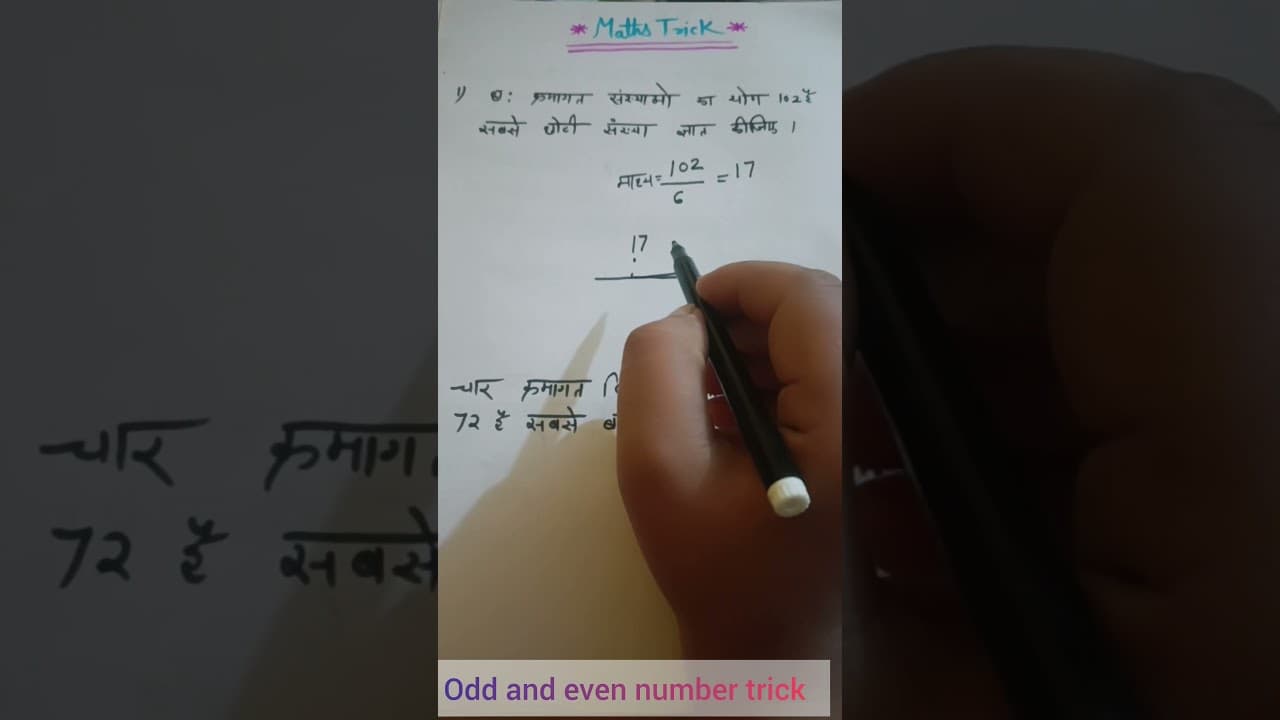 * Maths Trick *
1) छ: क्रमागत संख्याओ का योग 102 है
सबसे छोटी संख्या ज्ञात कीजिए ।
माध्य = 102/6 = 17
17
चार क्रमागत
72 है सबसे
Odd and even number trick